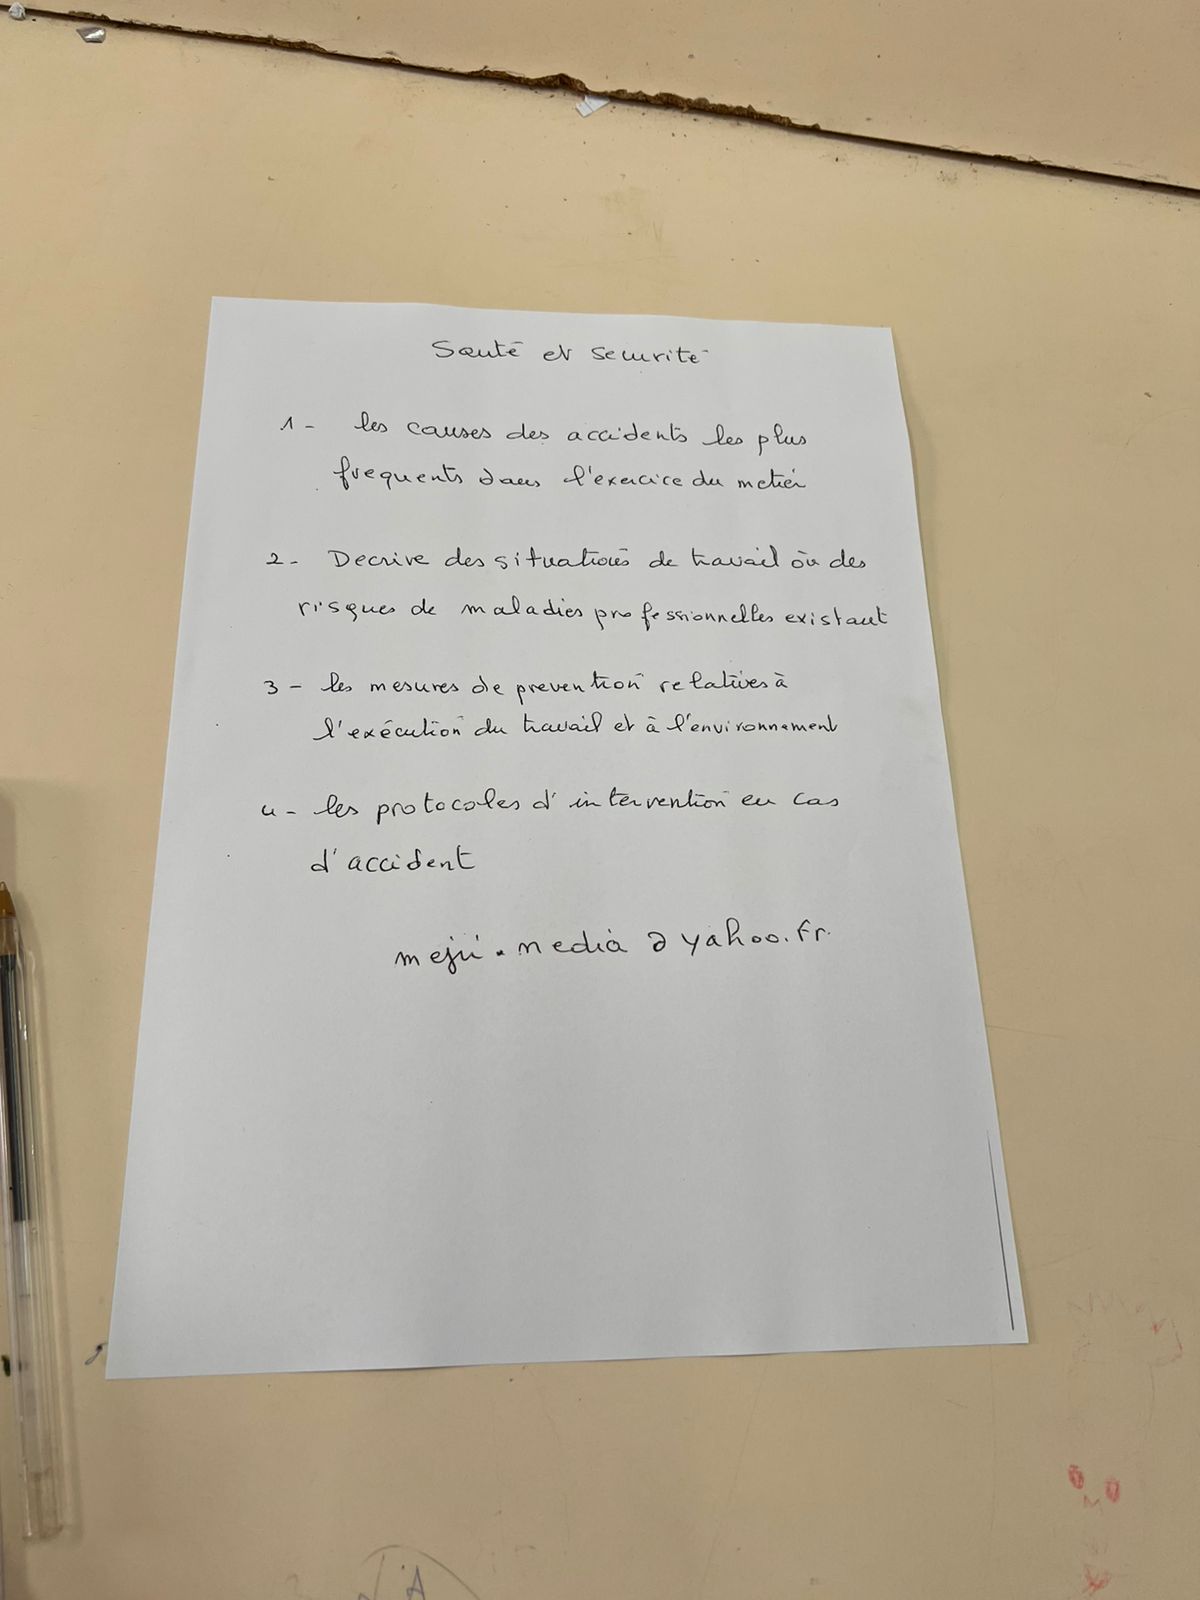 Santé et securité
1 - les causes des accidents les plus
frequents dans l'exercice du metier
2 - Decrire des situations de travail où des
risques de maladies professionnelles existant
3 - les mesures de prevention relatives à
l'exécution du travail et à l'environnement
4 - les protocoles d'intervention en cas
d'accident
meji.media@yahoo.fr.